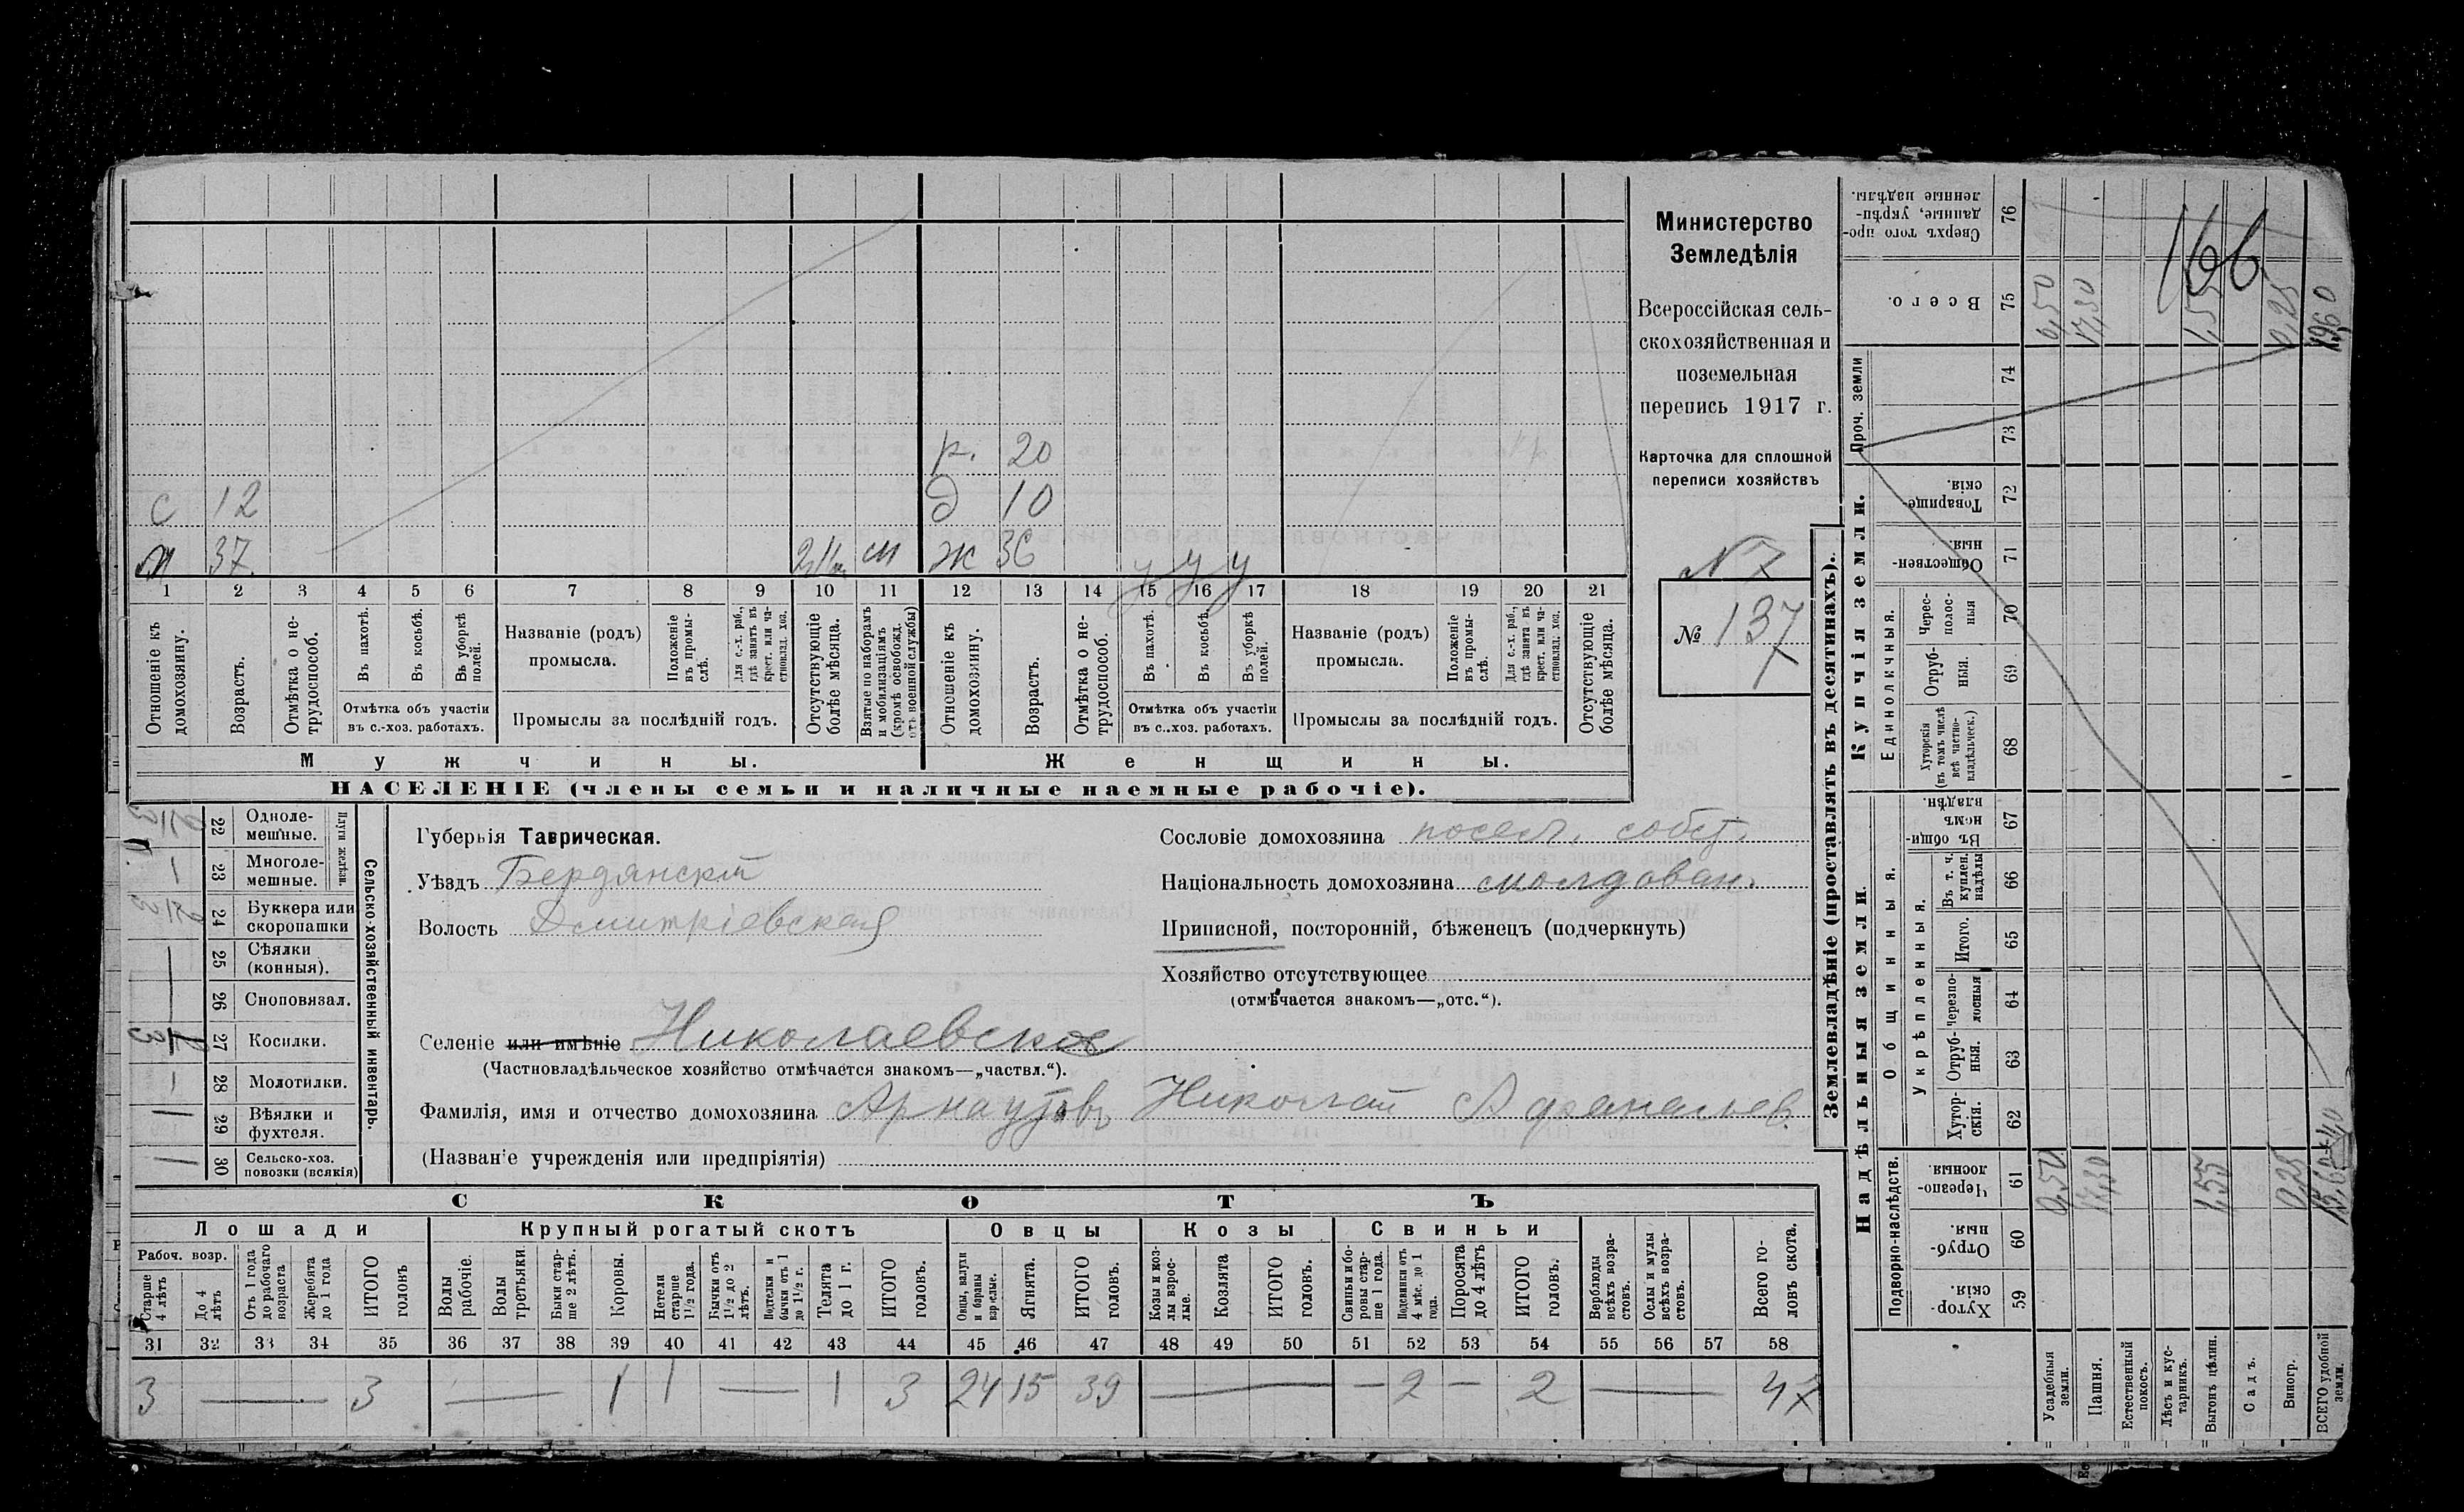 Министерство
Земледѣлія
Всероссійская сель-
скохозяйственная и
поземельная
перепись 1917 г.
Карточка для сплошной
переписи хозяйствъ
N 7
№ 137
166
р. 20
с 12 д 10
м 37 м ж 36 у у у
1 2 3 4 5 6 7 8 9 10 11 12 13 14 15 16 17 18 19 20 21
Отношеніе къ домохозяину.
Возрастъ.
Отмѣтка о не-трудоспособ.
Въ пахотѣ.
Въ косьбѣ.
Въ уборкѣ полей.
Отмѣтка объ участіи въ с.-хоз. работахъ.
Названіе (родъ) промысла.
Положеніе въ промы-слѣ.
Для с.-х. раб., гдѣ занятъ въ крест. или ча-стновлад. хоз.
Промыслы за послѣдній годъ.
Отсутствующіе болѣе мѣсяца.
Взятые по наборамъ и мобилизаціямъ (кромѣ освобожд. отъ военной службы)
Отношеніе къ домохозяину.
Возрастъ.
Отмѣтка о не-трудоспособ.
Въ пахотѣ.
Въ косьбѣ.
Въ уборкѣ полей.
Отмѣтка объ участіи въ с.-хоз. работахъ.
Названіе (родъ) промысла.
Положеніе въ промы-слѣ.
Для с.-х. раб., гдѣ занята въ крест. или ча-стновлад. хоз.
Промыслы за послѣдній годъ.
Отсутствующіе болѣе мѣсяца.
Мужчины. Женщины.
НАСЕЛЕНІЕ (члены семьи и наличные наемные рабочіе).
Сельско-хозяйственный инвентарь.
Плуги желѣзн.
22 Одноле-мешные.
23 Многоле-мешные.
24 Буккера или скоропашки
25 Сѣялки (конныя).
26 Сноповязал.
27 Косилки.
28 Молотилки.
29 Вѣялки и фухтеля.
30 Сельско-хоз. повозки (всякія)
Губернія Таврическая.
Уѣздъ Бердянскій
Волость Дмитріевская
Сословіе домохозяина посел. собст.
Національность домохозяина молдован.
Приписной, посторонній, бѣженецъ (подчеркнуть)
Хозяйство отсутствующее
(отмѣчается знакомъ—„отс.“).
Селеніе или имѣніе Николаевское
(Частновладѣльческое хозяйство отмѣчается знакомъ—„частвл.“).
Фамилія, имя и отчество домохозяина Арнаутовъ Николай Афанасьев.
(Названіе учрежденія или предпріятія)
СКОТЪ
Лошади Крупный рогатый скотъ Овцы Козы Свиньи
Рабоч. возр.
Старше 4 лѣтъ
До 4 лѣтъ
Отъ 1 года до рабочаго возраста
Жеребята до 1 года
ИТОГО головъ
Волы рабочіе.
Волы третьяки.
Быки стар-ше 2 лѣтъ.
Коровы.
Нетели старше 1½ года.
Бычки отъ 1½ до 2 лѣтъ.
Подтелки и бычки отъ 1 до 1½ г.
Телята до 1 г.
ИТОГО головъ.
Овцы, валухи и бараны взрослые.
Ягнята.
ИТОГО головъ.
Козы и коз-лы взрос-лые.
Козлята
ИТОГО головъ.
Свиньи и бо-ровы стар-ше 1 года.
Подсвинки отъ 4 мѣс. до 1 года.
Поросята до 4 лѣтъ
ИТОГО головъ.
Верблюды всѣхъ возра-стовъ.
Ослы и мулы всѣхъ возра-стовъ.
Всего го-ловъ скота.
31 32 33 34 35 36 37 38 39 40 41 42 43 44 45 46 47 48 49 50 51 52 53 54 55 56 57 58
3 — 3 — 1 1 — 1 3 24 15 39 — — 2 — 2 — 47
Землевладѣніе (проставлять въ десятинахъ).
Надѣльныя земли. Купчія земли. Проч. земли
Подворно-наслѣдств. Общинныя. Единоличныя.
Укрѣпленныя.
Хутор-скія. 59
Отруб-ныя. 60
Черезпо-лосныя. 61
Хутор-скія. 62
Отруб-ныя. 63
Черезпо-лосныя 64
Итого. 65
Въ т. ч. куплен. надѣлы 66
Въ общи-номъ владѣн. 67
Хуторскія (въ томъ числѣ всѣ частно-владѣльческ.) 68
Отруб-ныя. 69
Черес-полос-ныя 70
Обществен-ныя. 71
Товарище-скія. 72
73
74
Всего. 75
Сверхъ того про-данные, укрѣп-ленные надѣлы. 76
Усадебныя земли. 0,50 0,50
Пашня. 17,30 17,30
Естественный покосъ.
Лѣсъ и кус-тарникъ.
Выгонъ цѣлин. 1,55 1,55
Садъ.
Виногр. 0,25 0,25
ВСЕГО удобной земли. 19,60